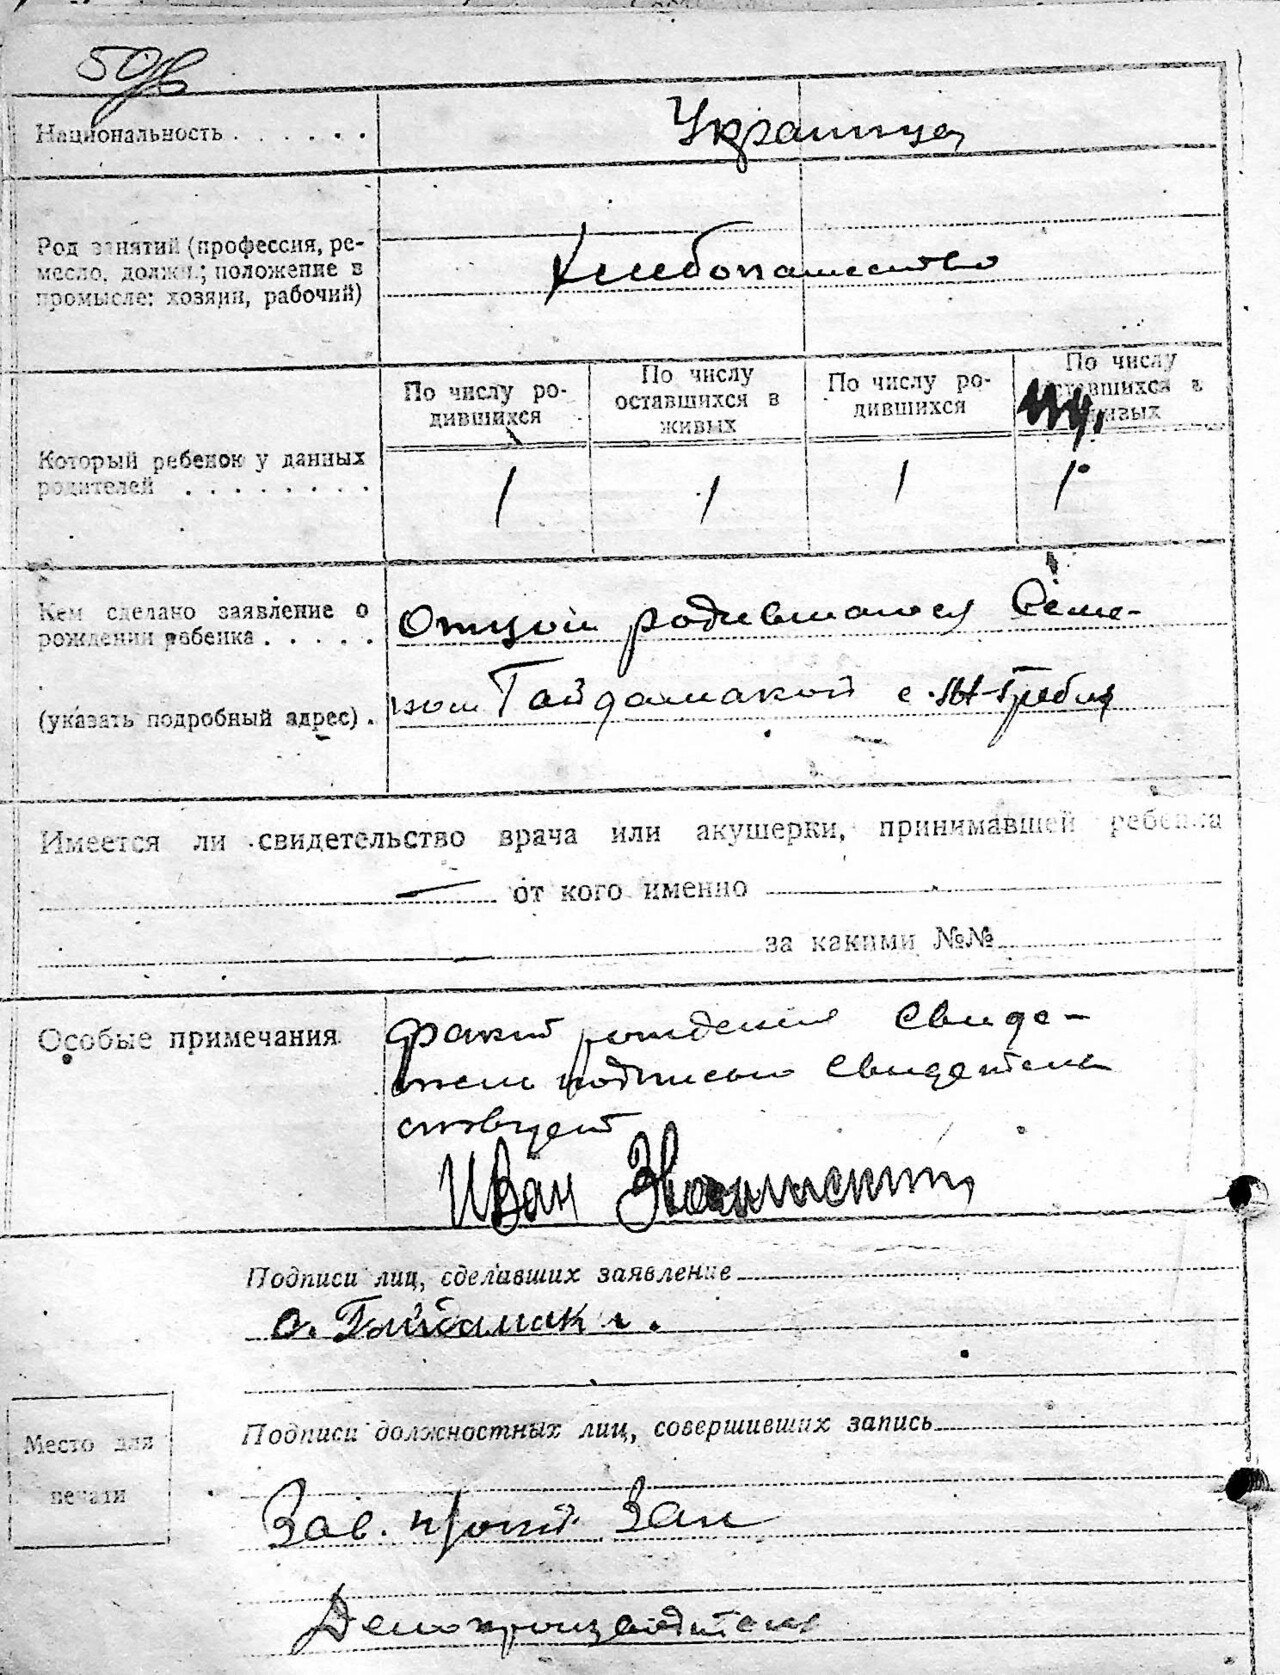 50 об
Национальность . . . . . .
Украинца
Род занятий (профессия, ре-
месло, должн.; положение в
промысле: хозяин, рабочий)
Хлебопашество
По числу ро-
дившихся
По числу
оставшихся в
живых
По числу ро-
дившихся
По числу
оставшихся в
живых
Который ребенок у данных
родителей . . . . . . . .
1 1 1 1
Кем сделано заявление о
рождении ребенка . . . . .
(указать подробный адрес) .
Отцом родившагося Семе-
ном Гайдамакой с. Гребля
Имеется ли свидетельство врача или акушерки, принимавшей ребенка
— от кого именно
за какими №№
Особые примечания
Факт рождения Свиде-
тель подписью Свидетель
ствует
Иван
Подписи лиц, сделавших заявление
Гайдамака.
Подписи должностных лиц, совершивших запись
Место для
печати
Зав.
Делопроизводитель